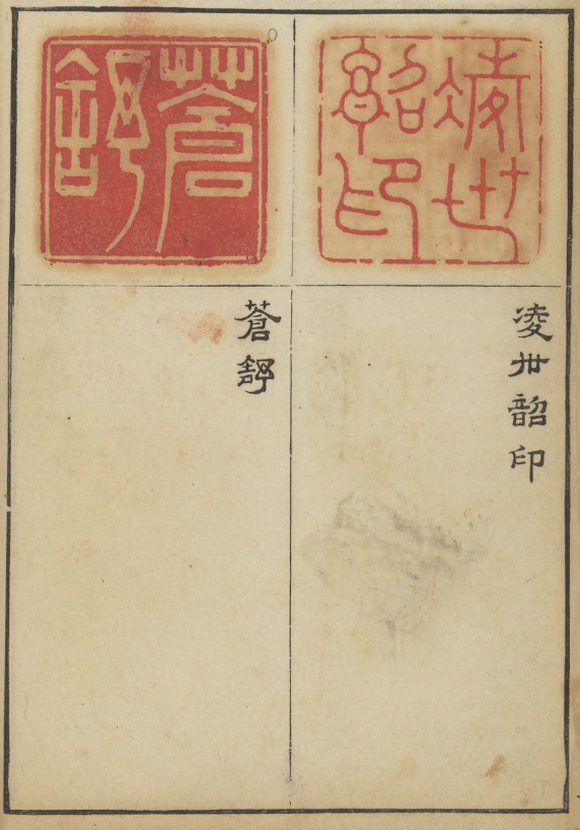 凌世
韶印
凌世韶印
蒼
舒
蒼舒